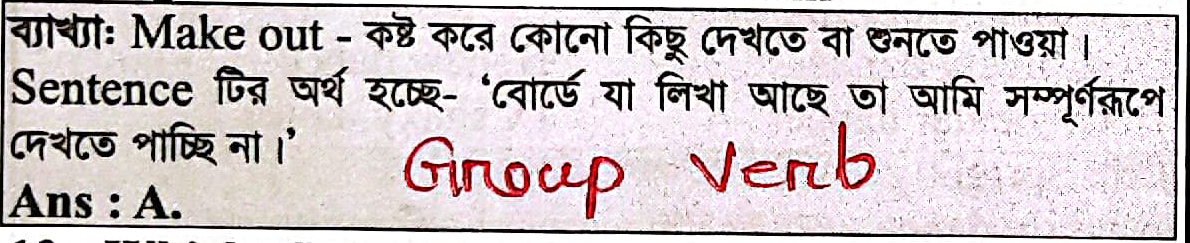 ব্যাখ্যা: Make out - কষ্ট করে কোনো কিছু দেখতে বা শুনতে পাওয়া।
Sentence টির অর্থ হচ্ছে- ‘বোর্ডে যা লিখা আছে তা আমি সম্পূর্ণরূপে
দেখতে পাচ্ছি না।’
Group Verb
Ans : A.